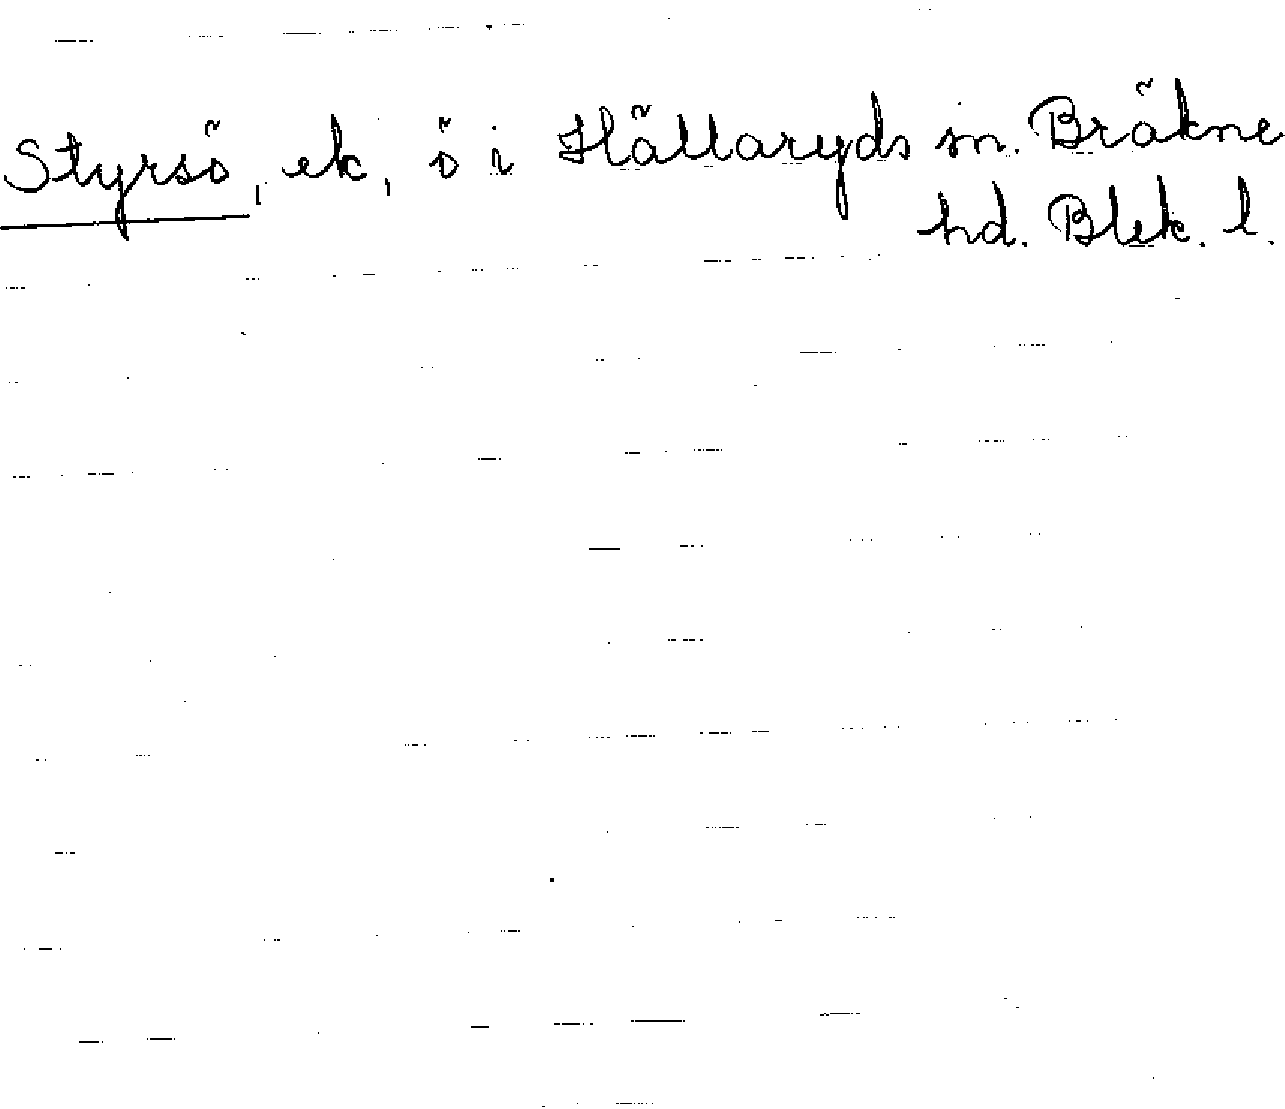 Styrsö, ek, ö i Hällaryds sn. Bräkne
hd. Blek. l.